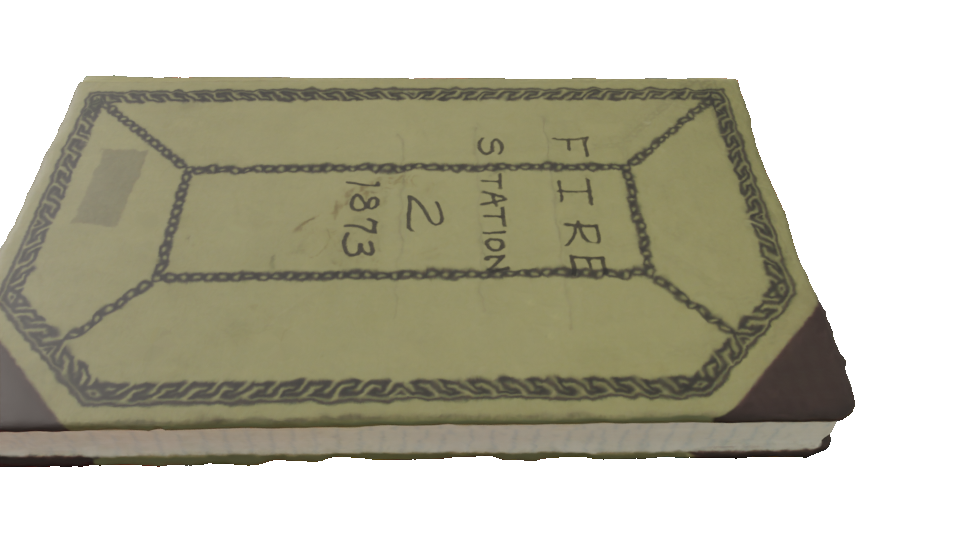 FIRE
STATION
2
1873